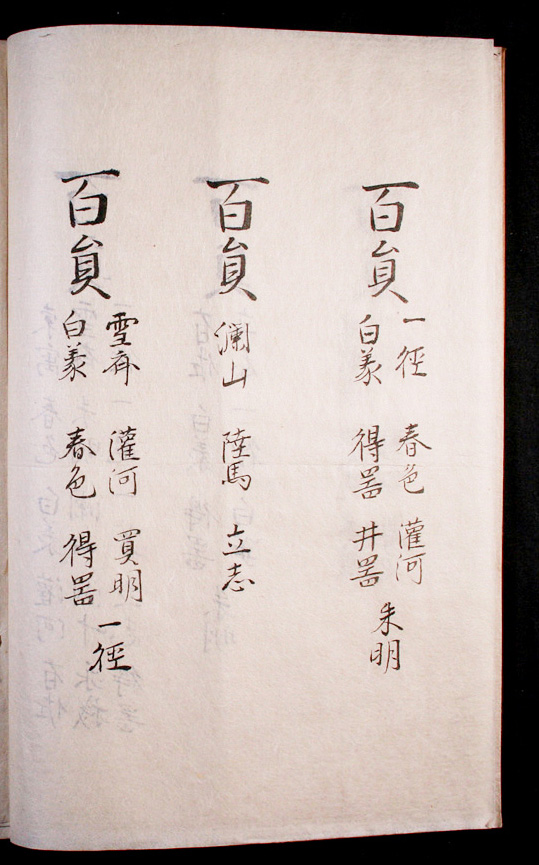 百員
一徑 春色 灌河
白羕 得器 井器
朱明
百員
瀾山 陸馬 立志
百員
雪斎 灌河 買明
白羕 春色 得器
一徑